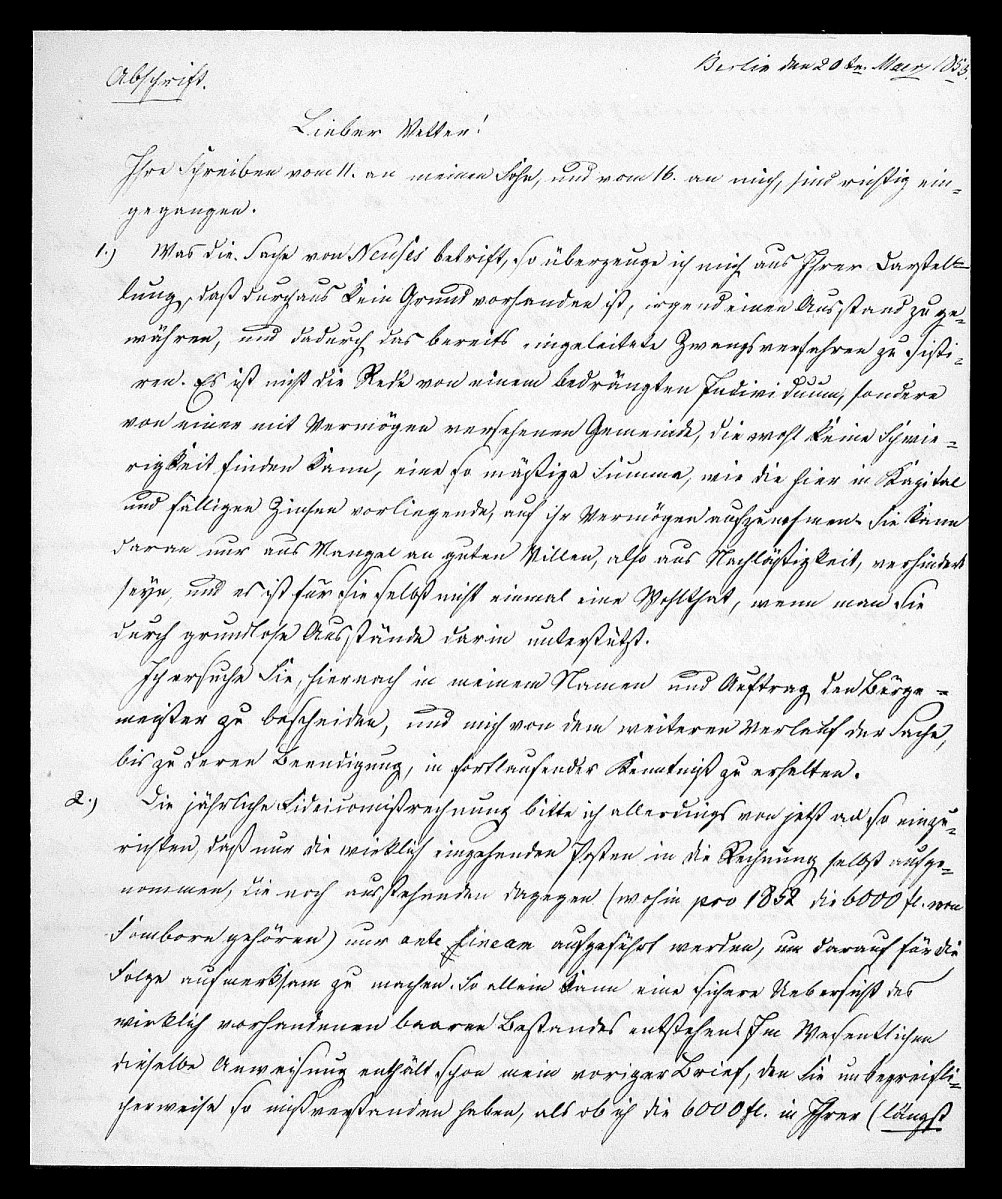 Abschrift.
Berlin den 20ten. Maerz 1853.
Lieber Vetter!
Ihre Schreiben vom 11. an meinen Sohn, und vom 16. an mich, sind richtig ein-
gegangen.
1.) Was die Sache von Neuses betrift, so überzeuge ich mich aus Ihrer Darstel-
lung, daß durchaus kein Grund vorhanden ist, irgend einen Ausstand zu ge-
währen, und dadurch das bereits eingeleitete Zwangsverfahren zu sisti-
ren. Es ist nicht die Rede von einem bedrängten Individuum, sondern
von einer mit Vermögen versehenen Gemeinde, die wohl keine Schwie-
rigkeit finden kann, eine so mäßige Summe, wie die hier in Kapital
und fälligen Zinsen vorliegende, auf ihr Vermögen aufzunehmen. Sie kann
daran nur aus Mangel an guten Willen, also aus Nachläßigkeit, verhindert
seyn, und es ist für Sie selbst nicht einmal eine Wohlthat, wenn man Sie
durch grundlose Ausstände darin unterstützt.
Ich ersuche Sie, hiernach in meinem Namen und Auftrag den Bürge-
meister zu bescheiden, und mich von dem weiteren Verlauf der Sache,
bis zu deren Beendigung, in fortlaufender Kenntniß zu erhalten.
2.) Die jährliche Fideicomißrechnung bitte ich allerdings von jetzt an so einzu-
richten, daß nur die wirklich eingehenden Posten in die Rechnung selbst aufge-
nommen, die noch ausstehenden dagegen (wohin pro 1852 die 6000 fl. von
Somborn gehören) nur ante lineam aufgeführt werden, um darauf für die
Folge aufmerksam zu machen. So allein kann eine sichere Uebersicht des
wirklich vorhandenen baaren Bestandes entstehen. Im Wesentlichen
dieselbe Anweisung enthält schon mein voriger Brief, den Sie unbegreifli-
cherweise so mißverstanden haben, als ob ich die 6000 fl. in Ihrer (längst